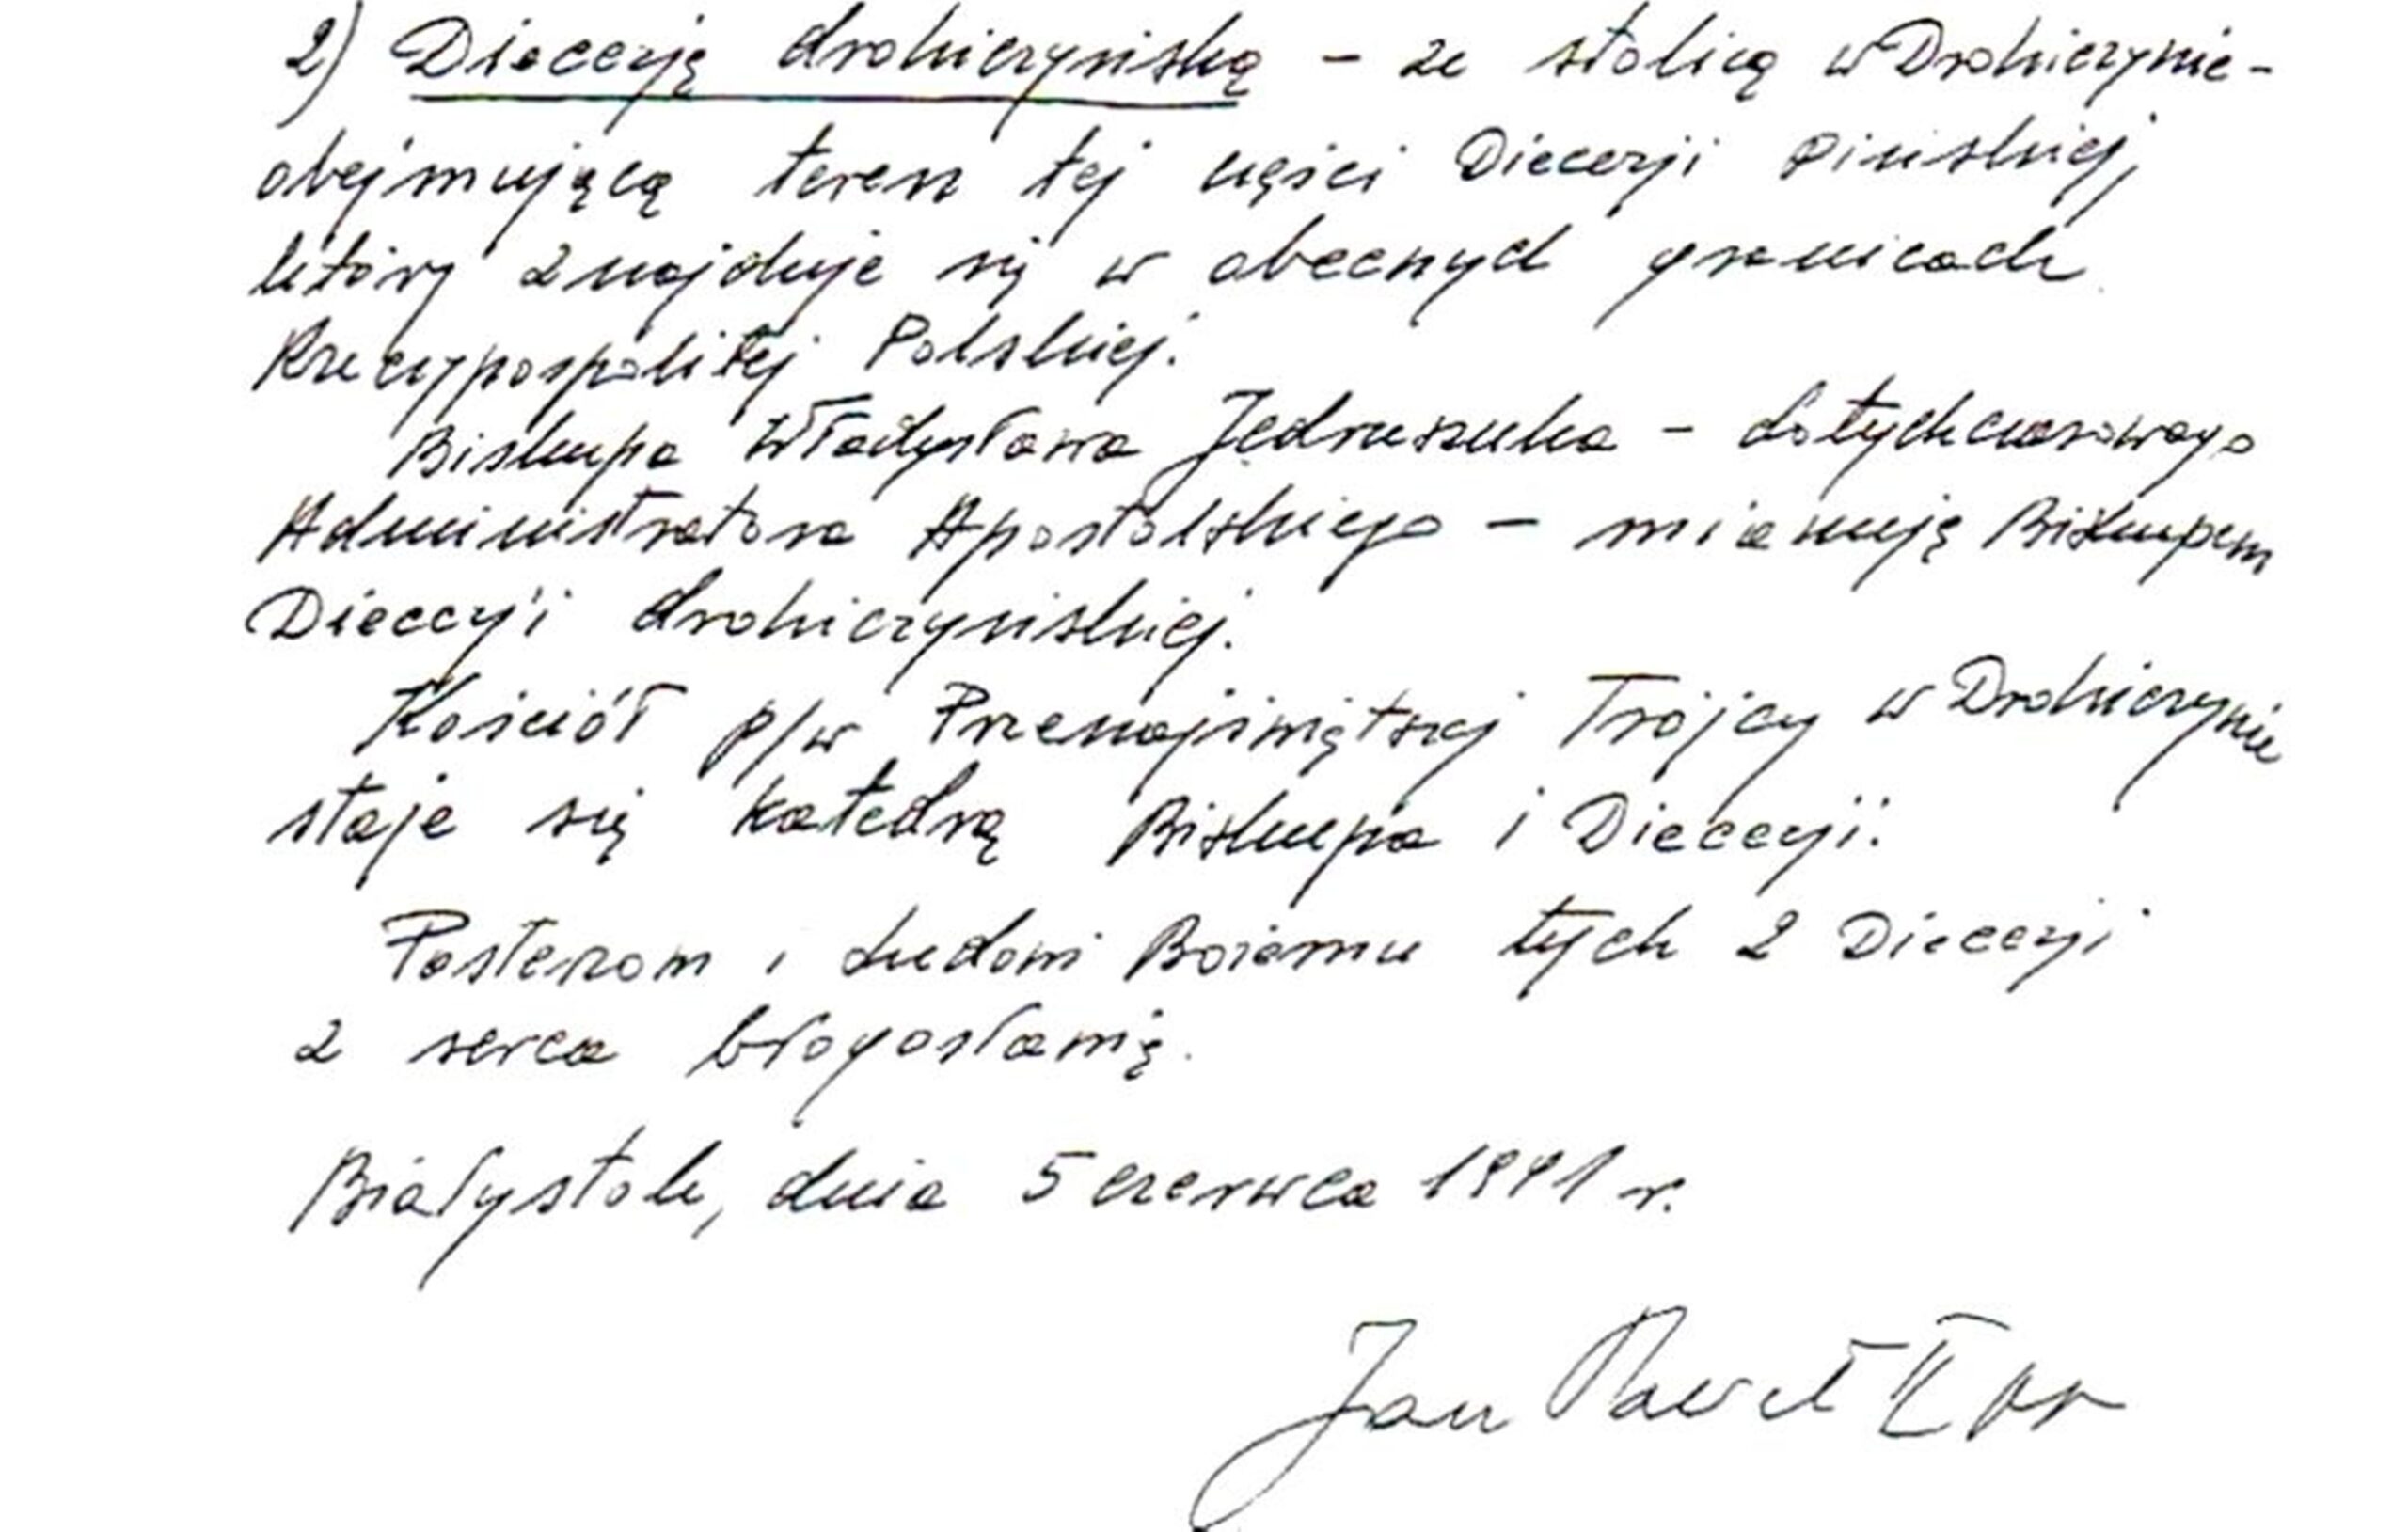 2) Diecezję drohiczyńską - ze stolicą w Drohiczynie -
obejmującą teren tej części Diecezji Pińskiej,
który znajduje się w obecnych granicach
Rzeczypospolitej Polskiej.
Biskupa Władysława Jędruszuka - dotychczasowego
Administratora Apostolskiego - mianuję Biskupem
Diecezji drohiczyńskiej.
Kościół p/w Przenajświętszej Trójcy w Drohiczynie
staje się katedrą Biskupa i Diecezji.
Pasterzom i Ludowi Bożemu tych 2 Diecezji
z serca błogosławię.
Białystok, dnia 5 czerwca 1991 r.
Jan Paweł II pp